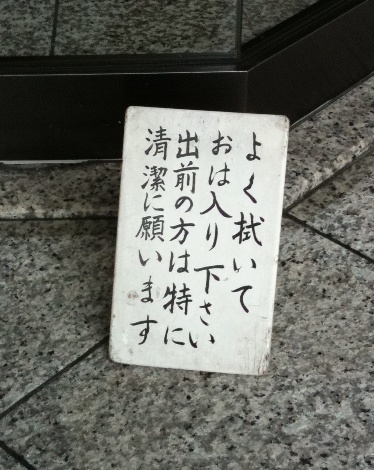 よく拭いて
おは入り下さい
出前の方は特に
清潔に願います